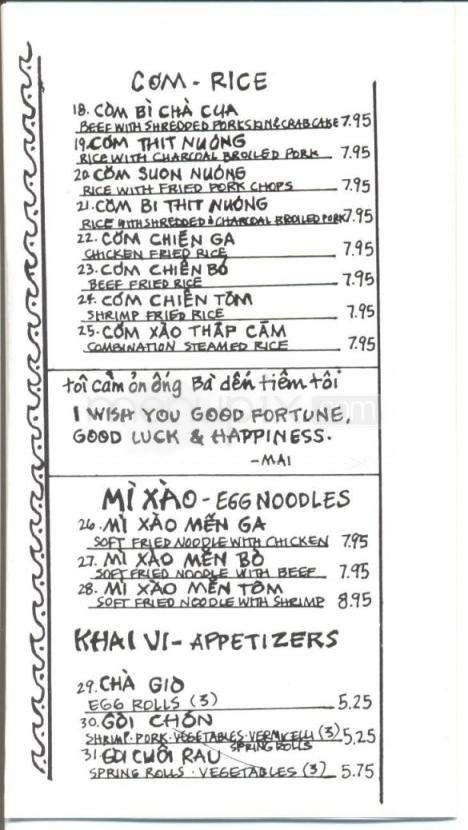 CƠM - RICE
18. CỜM BÌ CHẢ CUA
BEEF WITH SHREDDED PORKSKIN & CRAB CAKE 7.95
19. CỚM THIT NUỎNG
RICE WITH CHARCOAL BROILED PORK 7.95
20. CỚM SUON NUỎNG
RICE WITH FRIED PORK CHOPS 7.95
21. CỚM BI THIT NUỎNG
RICE WITH SHREDDED & CHARCOAL BROILED PORK 7.95
22. CỚM CHIÊN GA
CHICKEN FRIED RICE 7.95
23. CỚM CHIÊN BÓ
BEEF FRIED RICE 7.95
24. CỚM CHIÊN TÔM
SHRIMP FRIED RICE 7.95
25. CỚM XÀO THẬP CẨM
COMBINATION STEAMED RICE 7.95
tôi cảm ỏn ông Bà dến tiệm tôi
I WISH YOU GOOD FORTUNE,
GOOD LUCK & HAPPINESS.
-MAI
MÌ XÀO - EGG NOODLES
26. MÌ XÀO MỀN GA
SOFT FRIED NOODLE WITH CHICKEN 7.95
27. MÌ XÀO MỀN BÒ
SOFT FRIED NOODLE WITH BEEF 7.95
28. MÌ XÀO MỀN TÔM
SOFT FRIED NOODLE WITH SHRIMP 8.95
KHAI VI - APPETIZERS
29. CHẢ GIO
EGG ROLLS (3) 5.25
30. GỎI CHÓN
SHRIMP · PORK · VEGETABLES · VERMICELLI (3) 5.25
SPRING ROLLS
31. GOI CUỐI RAU
SPRING ROLLS · VEGETABLES (3) 5.75